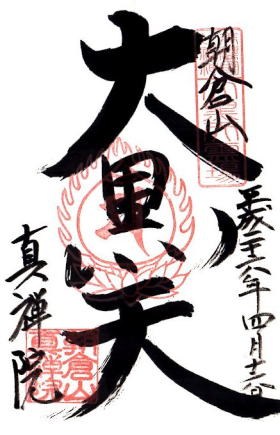 朝倉山
大黒天
平成二十六年四月十二日
真禅院
朝倉山